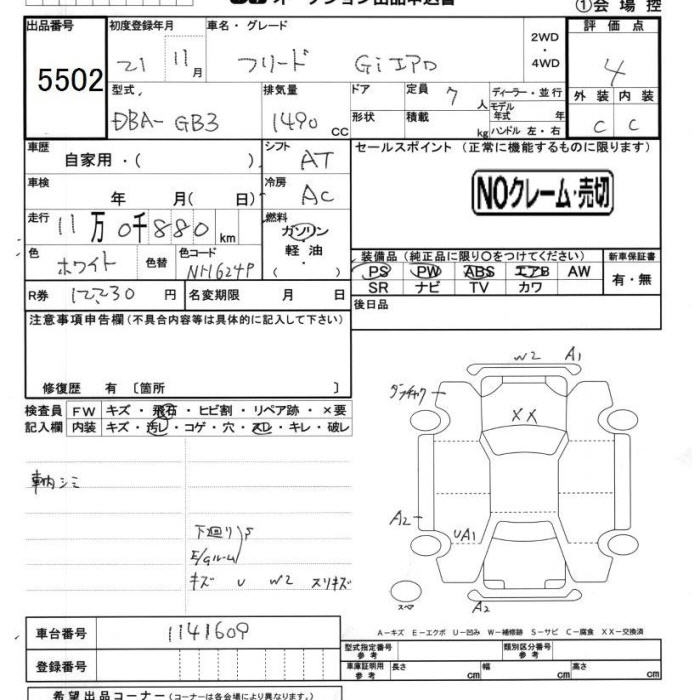 オークション出品申込書
①会 場 控
出品番号
5502
初度登録年月
21 11月
車名・グレード
フリード Gi エアロ
2WD
・
4WD
評 価 点
4
型式
DBA-GB3
排気量
1490 CC
ドア
形状
定員 7 人
積載 kg
ディーラー・並行
モデル年式 年
ハンドル 左・右
外 装 内 装
C C
車歴
自家用・( )
シフト
AT
セールスポイント (正常に機能するものに限ります)
NOクレーム・売切
車検
年 月( 日)
冷房
AC
走行
11万0千880km
燃料
ガソリン
軽 油
( )
色
ホワイト
色替
色コード
NH624P
装備品 (純正品に限り〇をつけてください)
PS PW ABS エアB AW
SR ナビ TV カワ
新車保証書
有・無
R券 12230 円
名変期限 月 日
後日品
注意事項申告欄(不具合内容等は具体的に記入して下さい)
修復歴 有 〔箇所 〕
検査員
記入欄
FW キズ・飛石・ヒビ割・リペア跡・×要
内装 キズ・汚レ・コゲ・穴・スレ・キレ・破レ
車内シミ
下廻り S
E/gルーム
キズ U W2 スリキズ
W2 A1
XX
A2
UA1
A2
スペア
A－キズ E－エクボ U－凹み W－補修跡 S－サビ C－腐食 XX－交換済
車台番号
1141609
登録番号
型式指定番号
参 考
類別区分番号
参 考
車庫証明用
参 考
長さ cm
幅 cm
高さ cm
希望出品コーナー(コーナーは各会場により異なります。)